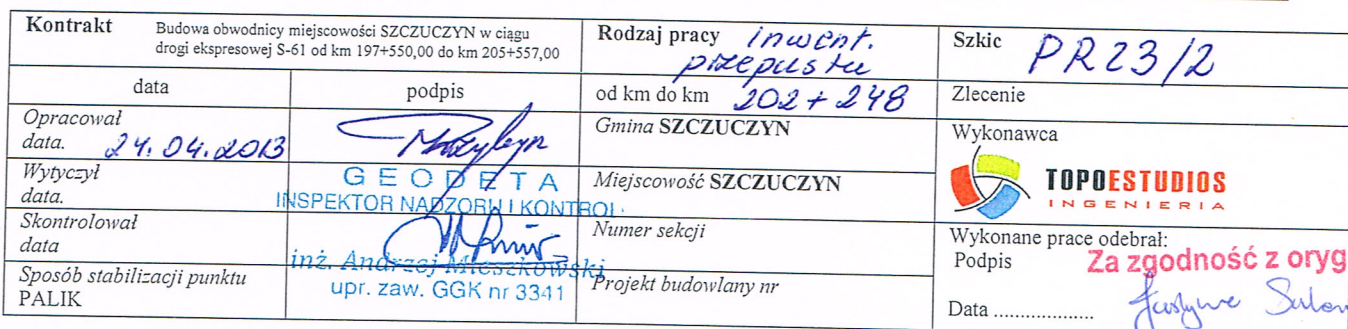 Kontrakt Budowa obwodnicy miejscowości SZCZUCZYN w ciągu
drogi ekspresowej S-61 od km 197+550,00 do km 205+557,00
Rodzaj pracy inwent.
przepustu
Szkic PR23/2
data podpis
od km do km 202+248
Zlecenie
Opracował
data. 24.04.2013
Gmina SZCZUCZYN
Wykonawca
TOPOESTUDIOS
INGENIERIA
Wytyczył
data.
GEODETA
INSPEKTOR NADZORU I KONTROL
Miejscowość SZCZUCZYN
Skontrolował
data
inż. Andrzej Mieszkowski
upr. zaw. GGK nr 3341
Numer sekcji
Wykonane prace odebrał:
Podpis Za zgodność z oryg
Sposób stabilizacji punktu
PALIK
Projekt budowlany nr
Data ...................